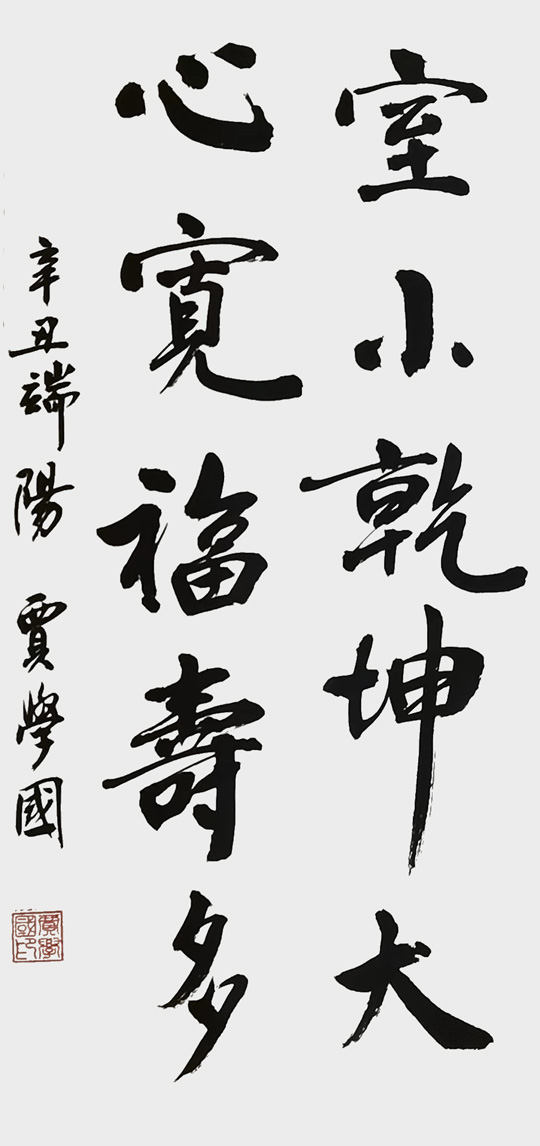 室小乾坤大
心寬福壽多
辛丑端陽 賈學國
賈學國印